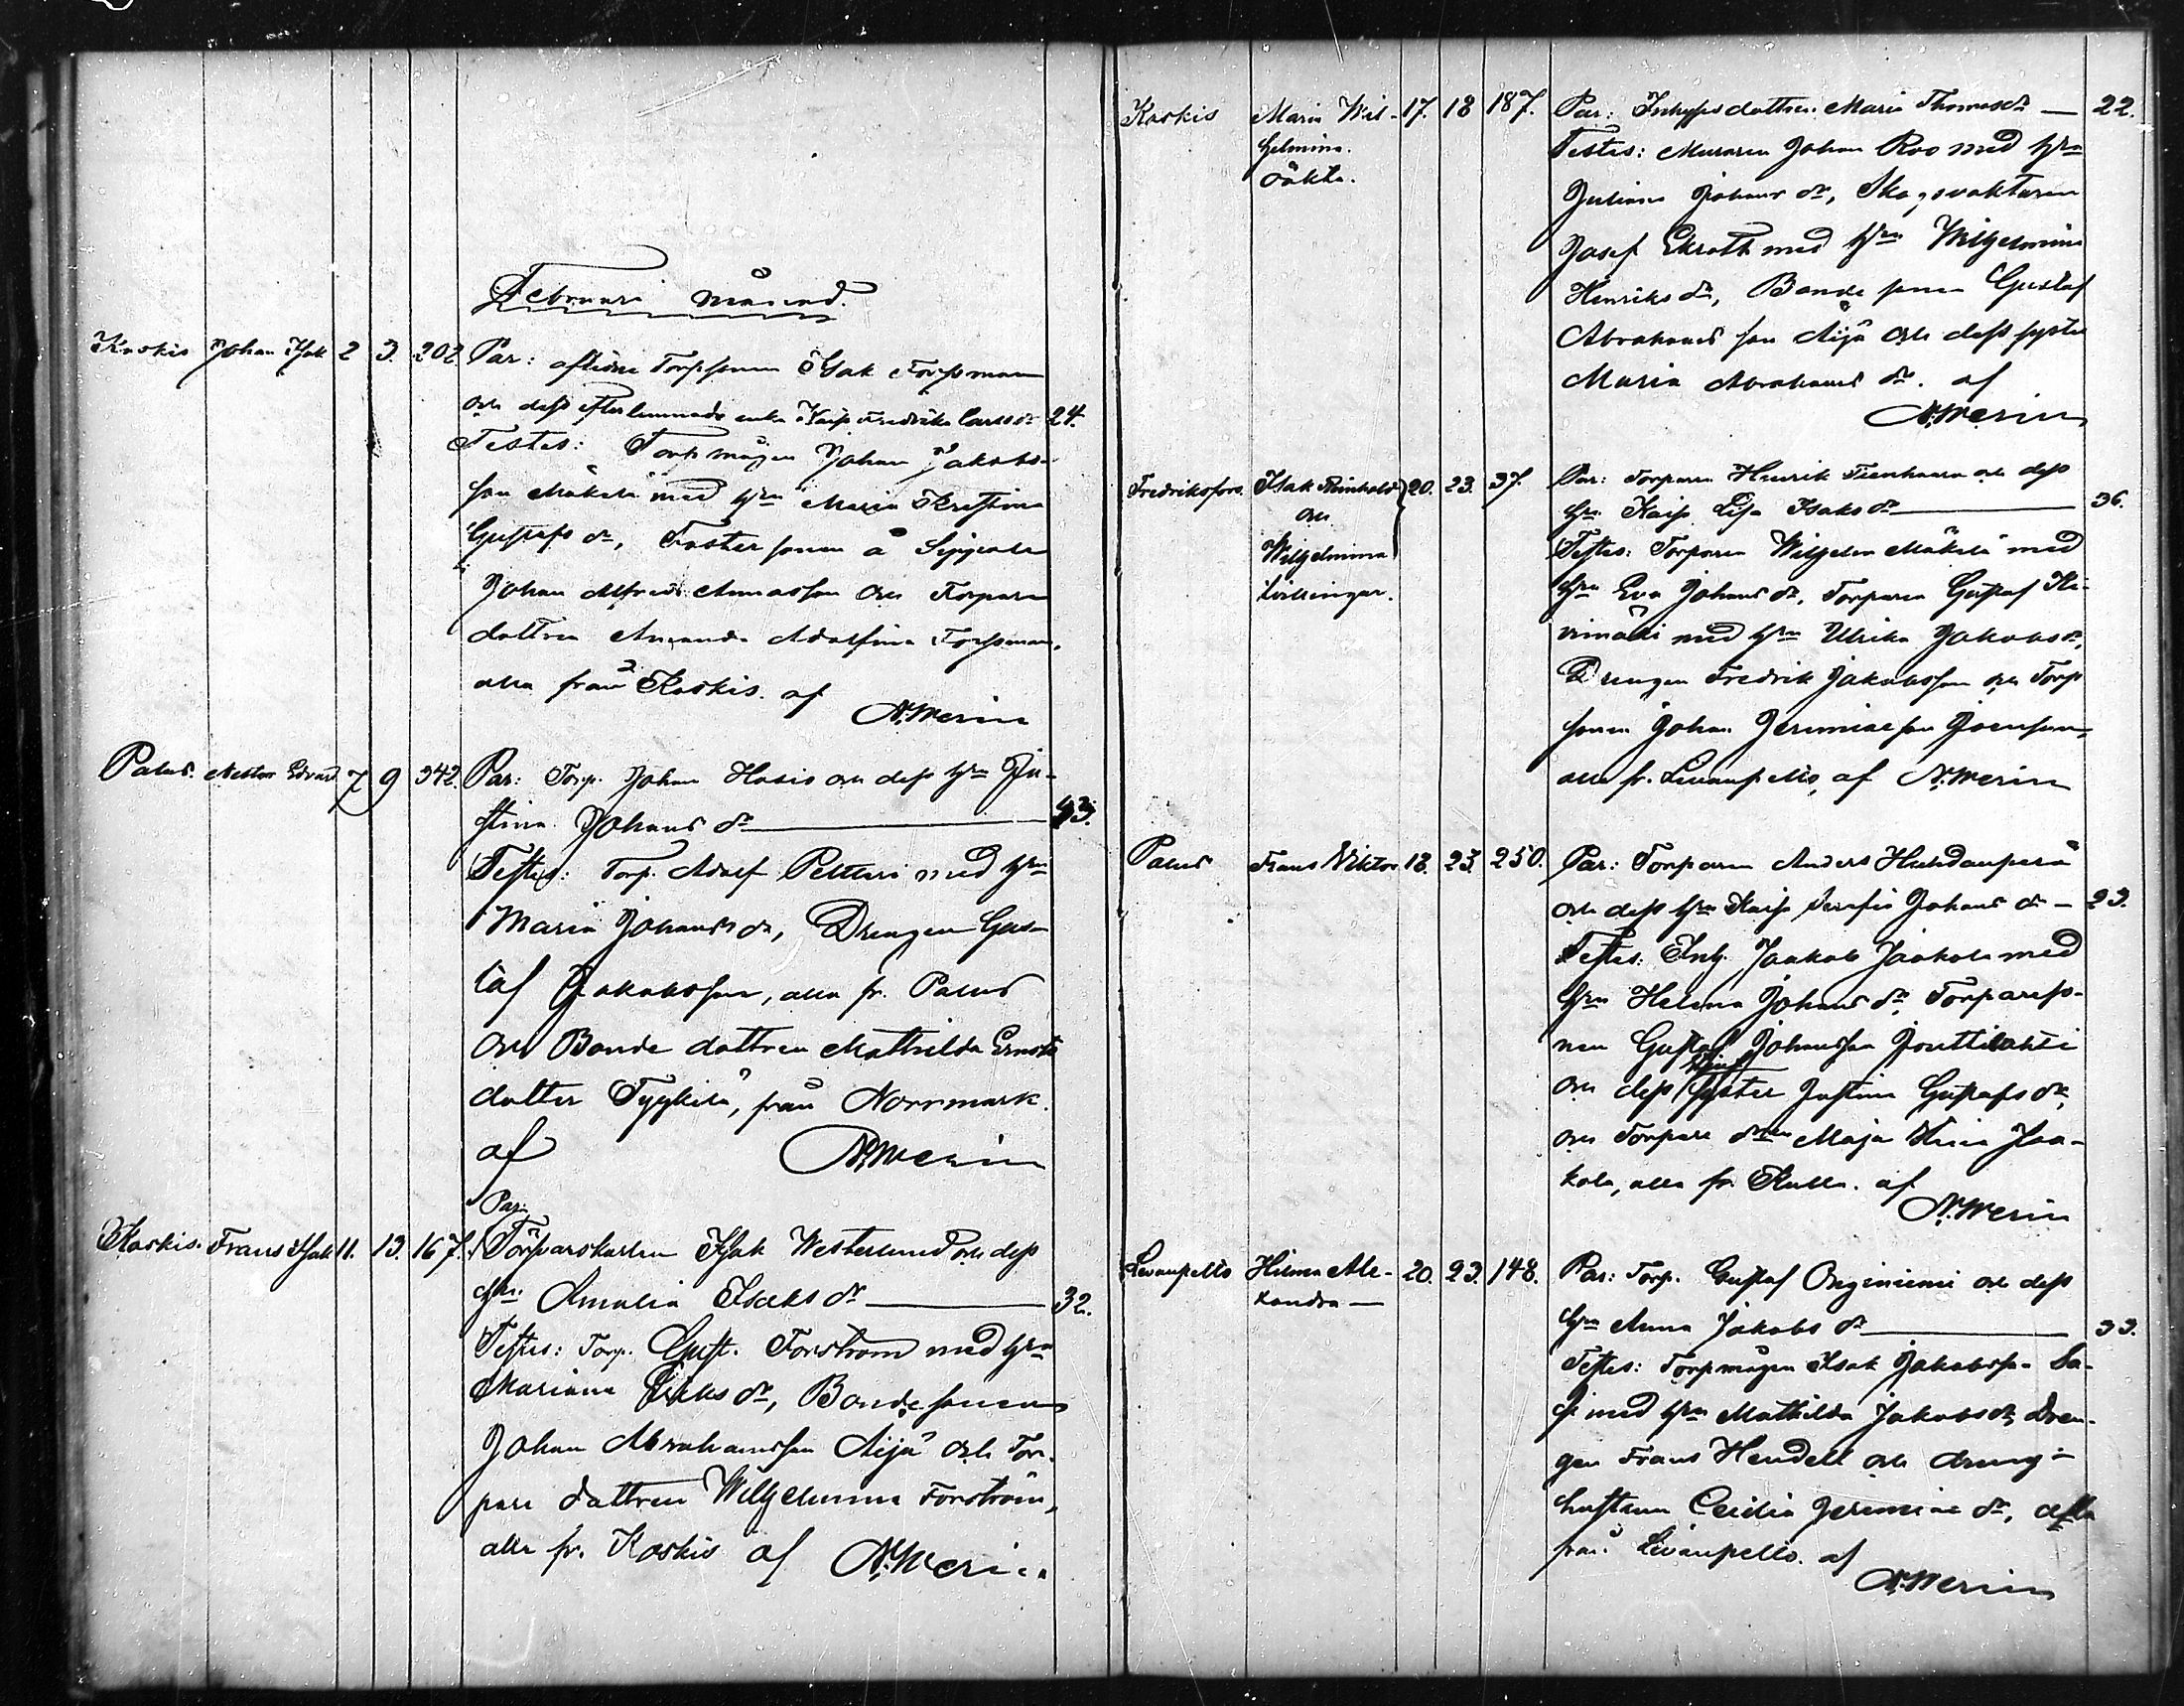 Februari månad.
Koskis Johan Isak 2 3. 202. Par: aflidne Torpsonen Isak Forssman
och dess efterlemnade enka Kaisa Fredrika Carlsdr 24.
Testes: Torpmågen Johan Jakobs-
son Mäkelä med hn Maria Kristina
Gustafsdr, Fostersonen å Sippola
Johan Alfred Annasson och Torpare
dottren Amanda Adolfina Forssman,
alla från Koskis. af
N. Merin
Palus. Nestor Edvard 7 9 342. Par: Torp. Johan Hosio och dess hn Ju-
stina Johansdr 43.
Testes: Torp. Adolf Peltteri med hn
Maria Johansdr, Drengen Gus-
taf Jakobsson, alla fr. Palus
och Bonde dottren Mathilda Ernsts
dotter Tyykilä, från Norrmark.
af N. Merin
Par:
Koskis. Frans Isak 11. 13. 167. Torparekarlen Isak Westerlund och dess
hn. Amalia Isaksdr 32.
Testes: Torp. Gust. Forström med hn
Mariana Eriksdr, Bondesonen
Johan Abrahamsson Äijä och Tor-
pare dottren Wilhelmina Forström,
alla fr. Koskis af N. Merin
Koskis Maria Wil- 17. 18 187. Par: Inhyses dottren Maria Thomasdr 22.
helmina. Testes: Muraren Johan Roo med hn
oäkta. Juliana Johansdr, Skogsvaktaren
Josef Ekroth med hn Wilhelmina
Henriksdr, Bonde sonen Gustaf
Abrahams son Äijä och dess syster
Maria Abrahamsdr. af
N. Merin
Fredriksfors. Isak Reinhold 20. 23. 37. Par: Torparen Henrik Tienhaara och dess
och hn Kaisa Lisa Isaksdr 36.
Wilhelmina Testes: Torparen Wilhelm Mäkelä med
tvillingar. hn Eva Johansdr, Torparen Gustaf Ki-
vimäki med hn Ulrika Jakobsdr,
Drengen Fredrik Jakobsson och Torp
sonen Johan Jeremiae son Joensuu,
alla fr. Levanpelto, af N. Merin
Palus Frans Viktor 18. 23. 250. Par: Torparen Anders Huhdanperä
och dess hn Kaisa Serafia Johansdr 23.
Testes: Inh. Jaakob Jaakola med
hn Helena Johansdr, Torpareso-
nen Gustaf Johansson Jouttilahti
och dess syster Justina Gustafsdr,
och Torpare dotren Maja Stina Jaa-
kola, alla fr. Kulla. af
N. Merin
Levanpelto Hilma Ale- 20. 23. 148. Par: Torp. Gustaf Onginiemi och dess
xandra hn Anna Jakobsdr 33.
Testes: Torpmågen Isak Jakobsson
med hn Mathilda Jakobsdr, Dren-
gen Frans Hendell och dreng-
hustrun Cecilia Jeremiae dr, alla
från Levanpelto. af
N. Merin